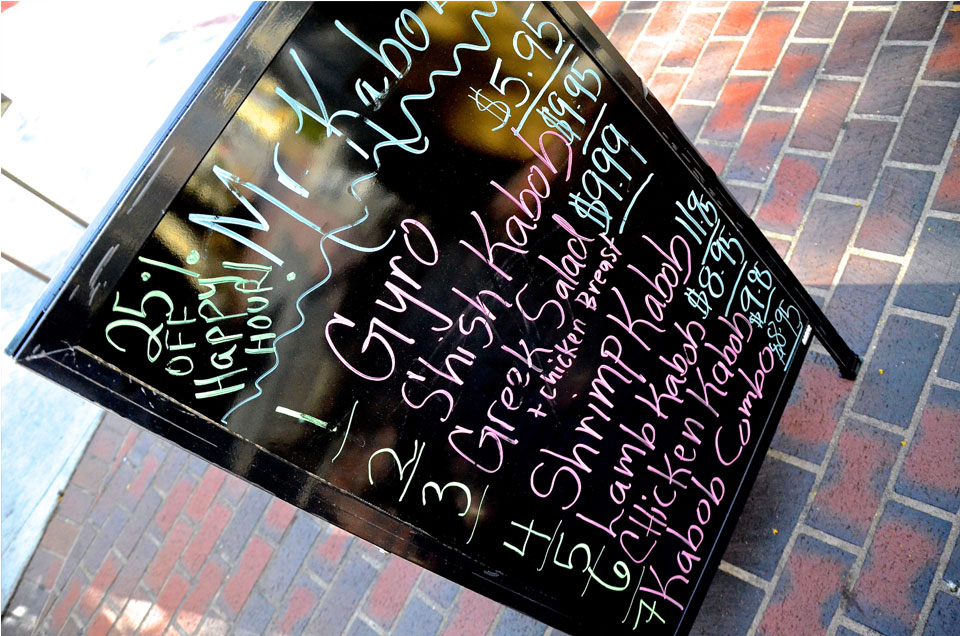 Mr. Kabob
25% OFF
Happy
Hour!
1 Gyro $5.95
2 Shish Kabob $9.95
3 Greek Salad $9.99
+ chicken Breast
4 Shrimp Kabob 11.95
5 Lamb Kabob $8.95
6 Chicken Kabob $9.95
7 Kabob Combo $8.95